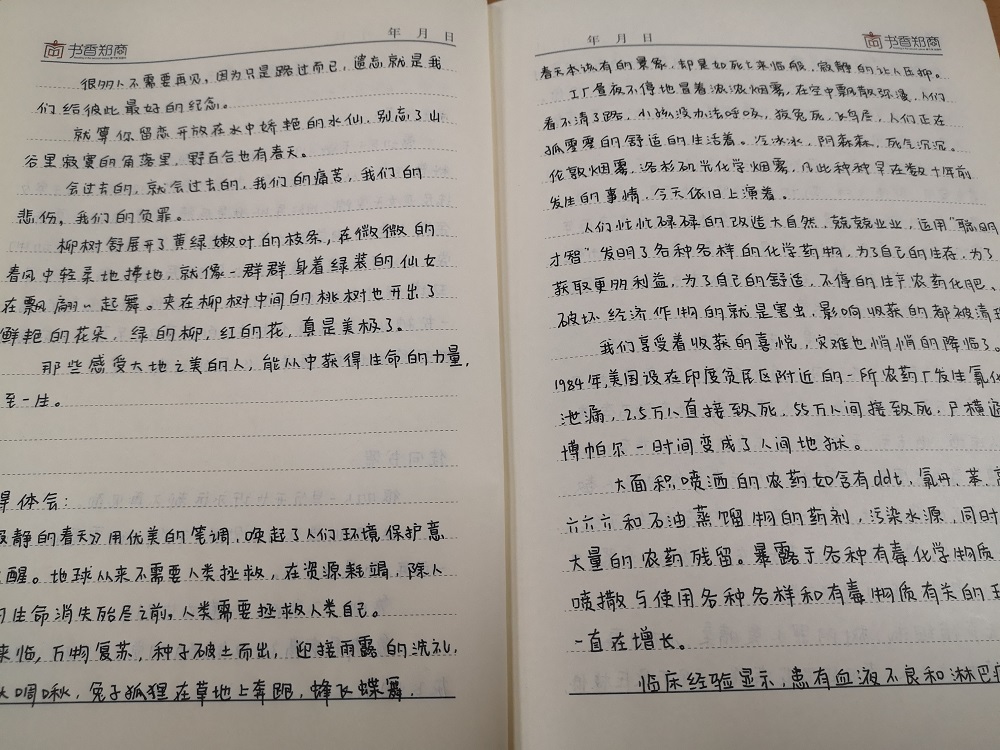 书香郑商
年 月 日
很多人不需要再见，因为只是路过而已，遗忘就是我
们给彼此最好的纪念。
就算你留恋开放在水中娇艳的水仙，别忘了山
谷里寂寞的角落里，野百合也有春天。
会过去的，就会过去的，我们的痛苦，我们的
悲伤，我们的负罪。
柳树舒展开了黄绿嫩叶的枝条，在微微的
春风中轻柔地拂地，就像一群群身着绿装的仙女
在飘翩起舞。夹在柳树中间的桃树也开出了
鲜艳的花朵，绿的柳，红的花，真是美极了。
那些感受大地之美的人，能从中获得生命的力量，
至一生。
得体会：
静的春天》用优美的笔调，唤起了人们环境保护意
醒。地球从来不需要人类拯救，在资源耗竭，除人
生命消失殆尽之前，人类需要拯救人类自己。
来临，万物复苏，种子破土而出，迎接雨露的洗礼，
啁啾，兔子狐狸在草地上奔跑，蜂飞蝶舞，
年 月 日
书香郑商
春天本该有的景象，却是如死亡来临般，寂静的让人压抑。
工厂昼夜不停地冒着浓浓烟雾，在空中飘散弥漫，人们
看不清了路，小孩没办法呼吸，猴兔死，飞鸟尽，人们正在
孤零零的舒适的生活着。冷冰冰，阴森森，死气沉沉。
伦敦烟雾，洛杉矶光化学烟雾，凡此种种早在数十年前
发生的事情，今天依旧上演着。
人们忙忙碌碌的改造大自然，兢兢业业，运用“聪明
才智”发明了各种各样的化学药物，为了自己的生存，为了
获取更多利益，为了自己的舒适，不停的生产农药化肥。
破坏经济作物的就是害虫，影响收获的都被清
我们享受着收获的喜悦，灾难也悄悄的降临了。
1984年，美国设在印度贫民区附近的一所农药厂发生氰化
泄漏，2.5万人直接致死，55万人间接致死，尸横遍
博帕尔一时间变成了人间地狱。
大面积喷洒的农药如含有ddt，氯丹，苯，
六六六和石油蒸馏物的药剂，污染水源，同时
大量的农药残留。暴露于各种有毒化学物质
喷撒与使用各种各样和有毒物质有关的
一直在增长。
临床经验显示，患有血液不良和淋巴